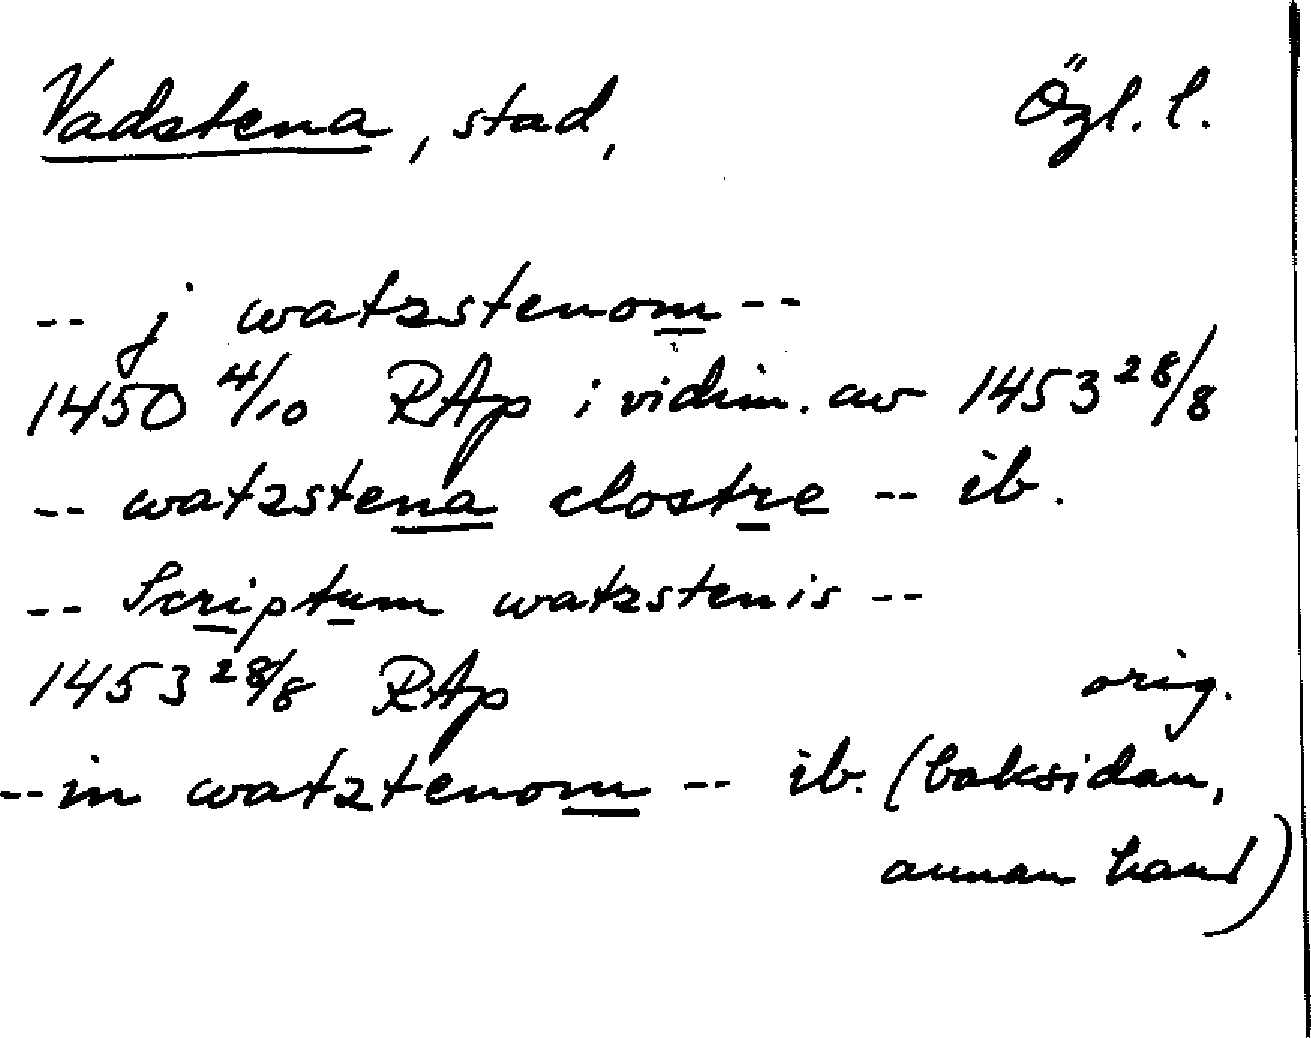 Vadstena, stad, Özl. l.
-- j watzstenom --
1450 4/10 RAp i vidim. av 1453 28/8
-- watzstena clostre -- ib.
-- Scriptum watzstenis --
1453 28/8 RAp orig.
-- in watztenom -- ib. (baksidan,
annan hand)